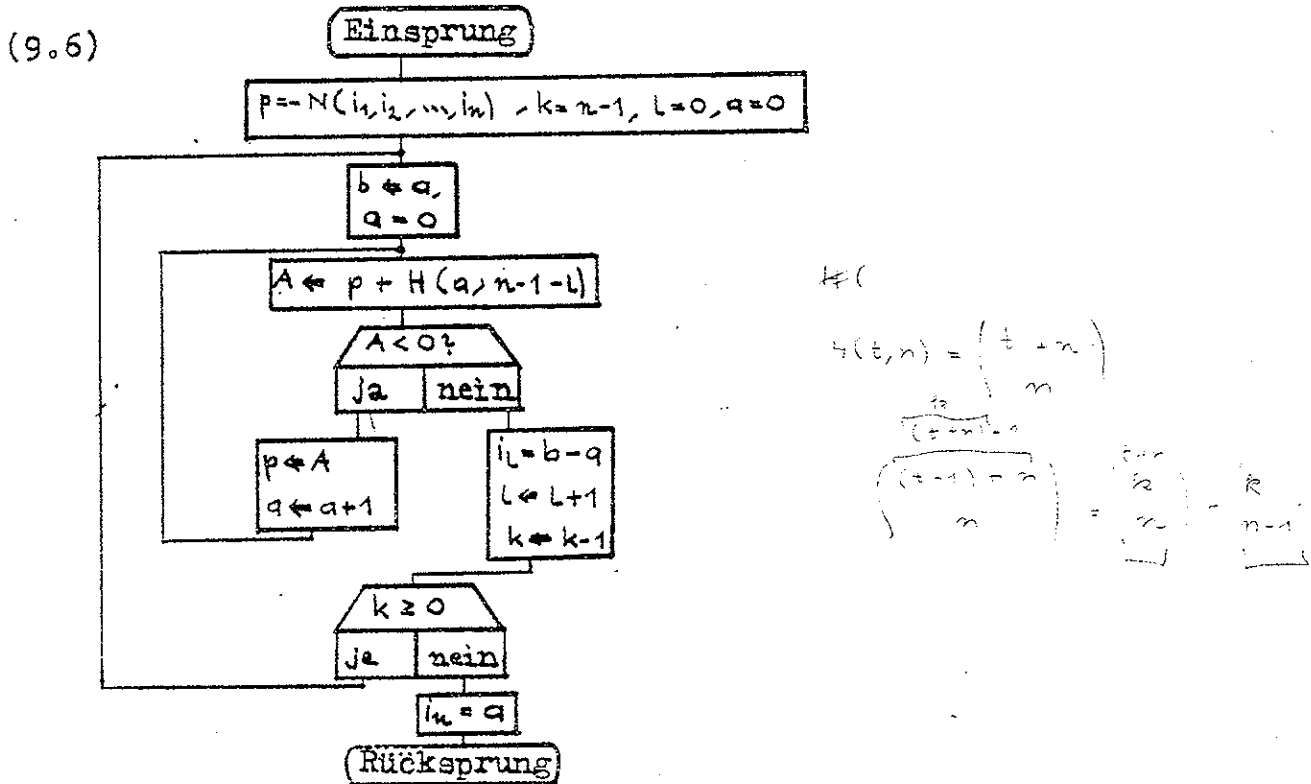 (9.6)
Einsprung
p=-N(i₁,i₂,...,iₙ), k=n-1, l=0, a=0
b ⇐ a,
a = 0
A ⇐ p + H(a, n-1-l)
A < 0?
ja nein
p ⇐ A
a ⇐ a+1
i_l = b-a
l ⇐ l+1
k ⇐ k-1
k ≥ 0
ja nein
iₙ = a
Rücksprung
H(t,n) = ( t + n
n )